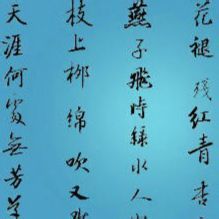 花褪残红青杏
燕子飞时绿水人
枝上柳绵吹又
天涯何处无芳草